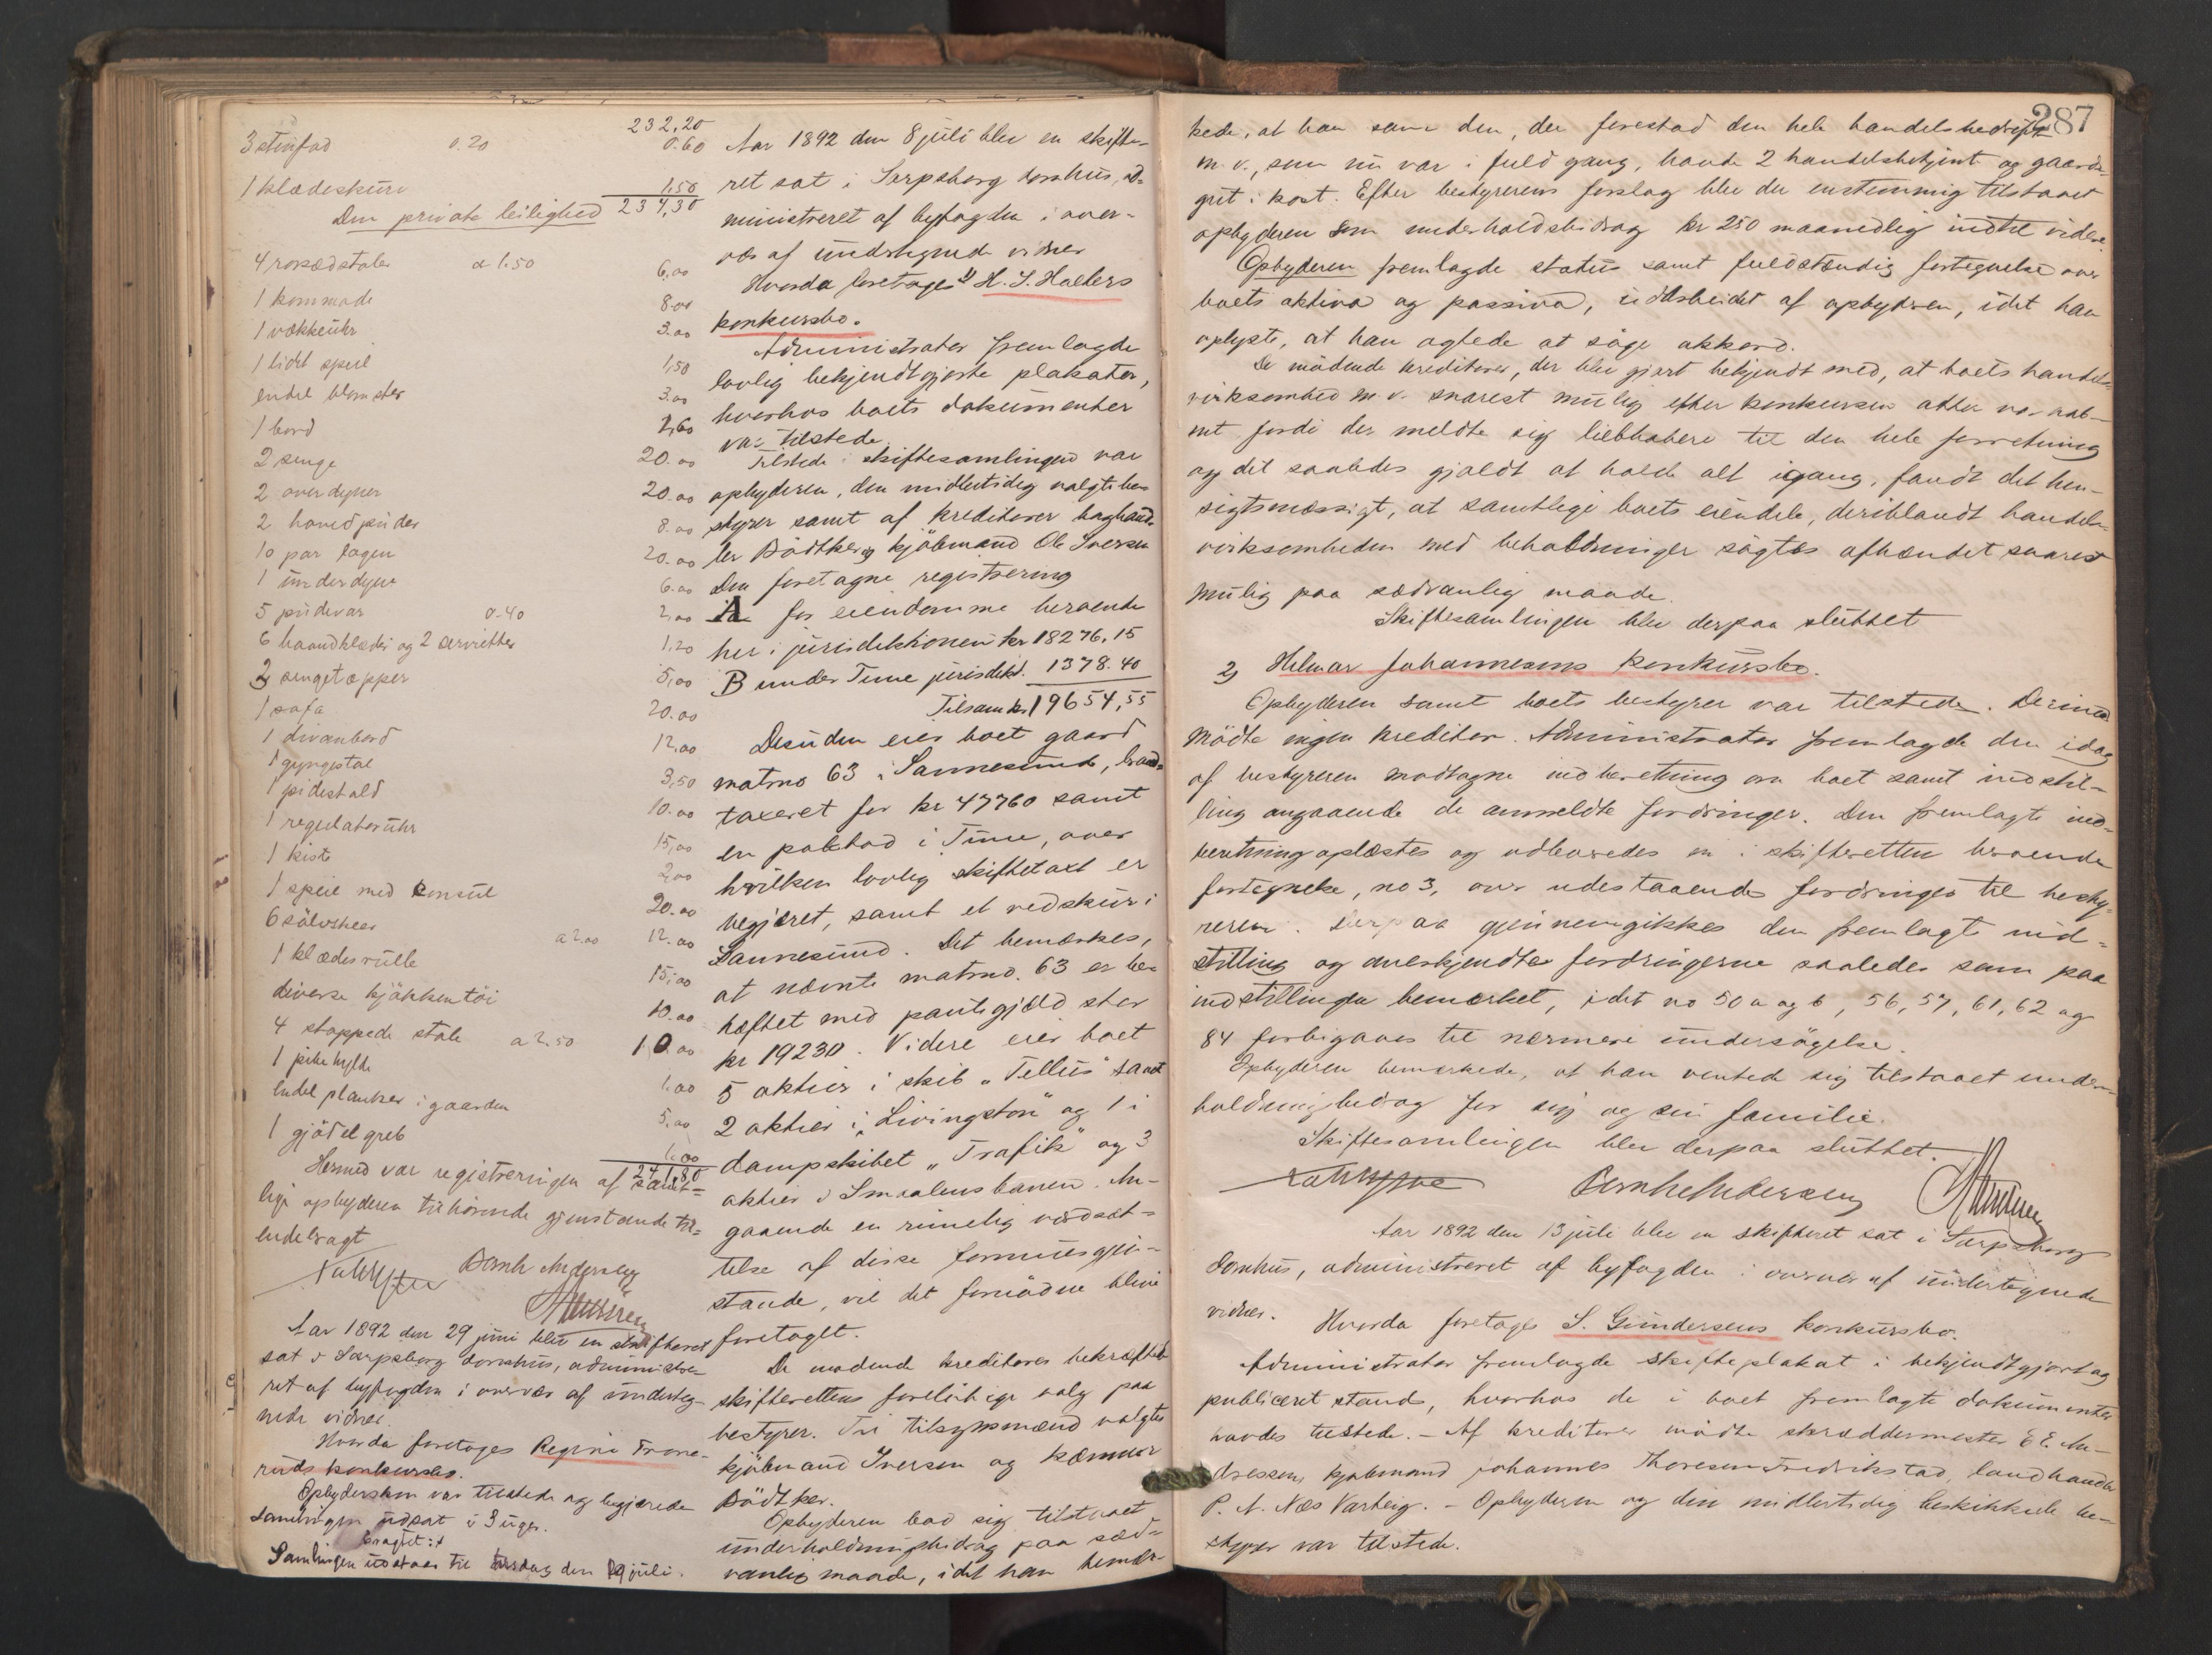 232,20
3 stenfad 0.20 0.60
1 klædeskurv 1,50
Den private leilighed 234,30
4 rorsædstole a 1.50 6,00
1 kommode 8.00
1 vækkeuhr 3.00
1 lidet speil 1,50
endel blomster 3.00
1 bord 2,60
2 senge 20.00
2 overdyner 20.00
2 hovedpuder 8.00
10 par lagen 20.00
1 underdyne 6.00
5 pudevar 0.40 2,00
6 haandklæder og 2 servietter 1,20
3 sengetæpper 5,00
1 sofa 20.00
1 divanbord 12,00
1 gyngestol 3,50
1 pidestald 10.00
1 regulatoruhr 15,00
1 kiste 2,00
1 speil med konsul 20.00
6 sølvskeer a 2.00 12.00
1 klædesrulle 15,00
diverse kjøkkentøi 10.00
4 stoppede stole a 2.50 10.00
1 pibehylde 1.00
endel planker i gaarden 5,00
1 gjødelgreb 1.00
241,80
Hermed var registreringen af samt-
lige opbyderen tilhørende gjenstande til-
endebragt
Bernh Andersen
Aar 1892 den 29 juni blev en skifteret
sat i Sarpsborg domhus, administre-
ret af byfogden i overvær af underteg-
nede vidner.
Hvorda foretoges Regine Trone-
ruds konkursbo.
Opbydersken var tilstede og begjærede
samlingen udsat i 3 uger.
Eragtet:
Samlingen udsættes til tirsdag den 19 juli.
Aar 1892 den 8 juli blev en skifte-
ret sat i Sarpsborg domhus, ad-
ministreret af byfogden i over-
vær af undertegnede vidner
Hvorda foretoges 1) H. J. Holters
konkursbo.
Administrator fremlagde
lovlig bekjendtgjorte plakater,
hvorhos boets dokumenter
var tilstede.
Tilstede i skiftesamlingen var
opbyderen, den midlertidig valgte be-
styrer samt af kreditorer boghand-
ler Bødtker og kjøbmand Ole Iversen
Den foretagne registrering
A for eiendomme beroende
her i jurisdiktionen kr 18276,15
B under Tune jurisdikt. 1378.40
Tilsam kr 19654,55
Desuden eier boet gaard
matrno 63 i Sannesund, brand-
taxeret for kr 47760 samt
en pakbod i Tune, over
hvilken lovlig skiftetaxt er
begjæret, samt et vedskur i
Sannesund. Det bemærkes,
at nævnte matrno. 63 er be-
hæftet med pantegjæld stor
kr 19230. Videre eier boet
5 aktier i skib „Tellus“ samt
2 aktier i „Livingston“ og 1 i
dampskibet „Trafik“ og 3
aktier i Smaalensbanen. An-
gaaende en rimelig værdsæt-
telse af disse formuesgjen-
stande, vil det fornødne blive
foretaget.
De mødende kreditorer bekræftede
skifterettens foreløbige valg paa
bestyrer. Til tilsynsmænd valgtes
kjøbmand Iversen og kæmner
Bødtker.
Opbyderen bad sig tilstaaet
underholdningsbidrag paa sæd-
vanlig maade, idet han bemær-
287
kede, at han som den, der forestod den hele handelsbedrift
m. v., som nu var i fuld gang, havde 2 handelsbetjente og gaards-
gut i kost. Efter bestyrerens forslag blev der enstemmig tilstaaet
opbyderen som underholdsbidrag kr 250 maanedlig indtil videre.
Opbyderen fremlagde status samt fuldstændig fortegnelse over
boets aktiva og passiva, udarbeidet af opbyderen, idet han
oplyste, at han agtede at søge akkord.
De mødende kreditorer, der blev gjort bekjendt med, at boets handels-
virksomhed m. v. snarest mulig efter konkursen atter var aab-
net fordi der meldte sig liebhabere til den hele forretning
og det saaledes gjaldt at holde alt igang, fandt det hen-
sigtsmæssigt, at samtlige boets eiendele, deriblandt handels-
virksomheden med beholdninger søgtes afhændet snarest
mulig paa sædvanlig maade.
Skiftesamlingen blev derpaa sluttet
2) Hilmar Johannesens konkursbo.
Opbyderen samt boets bestyrer var tilstede. Derimod
mødte ingen kreditor. Administrator fremlagde den idag
af bestyreren modtagne indberetning om boet samt indstil-
ling angaaende de anmeldte fordringer. Den fremlagte ind-
beretning oplæstes og udleveredes en i skifteretten beroende
fortegnelse, no 3, over udestaaende fordringer til besty-
reren. Derpaa gjennemgikkes den fremlagte ind-
stilling og anerkjendtes fordringerne saaledes som paa
indstillingen bemærket, idet no 50 a og b, 56, 57, 61, 62 og
84 forbigaaes til nærmere undersøgelse.
Opbyderen bemærkede, at han ventede sig tilstaaet under-
holdningsbidrag for sig og sin familie.
Skiftesamlingen blev derpaa sluttet.
Bernh Andersen
Aar 1892 den 13 juli blev en skifteret sat i Sarpsborg
domhus, administreret af byfogden i overvær af undertegnede
vidner. Hvorda foretoges S. Gundersens konkursbo.
Administrator fremlagde skifteplakat i bekjendtgjort og
publiceret stand, hvorhos de i boet fremlagte dokumenter
havdes tilstede. - Af kreditorer mødte skræddermester C E. An-
dressen, kjøbmand Johannes Thoresen Fredrikstad, landhandler
P. A. Næs Varteig. - Opbyderen og den midlertidig beskikkede be-
styrer var tilstede.